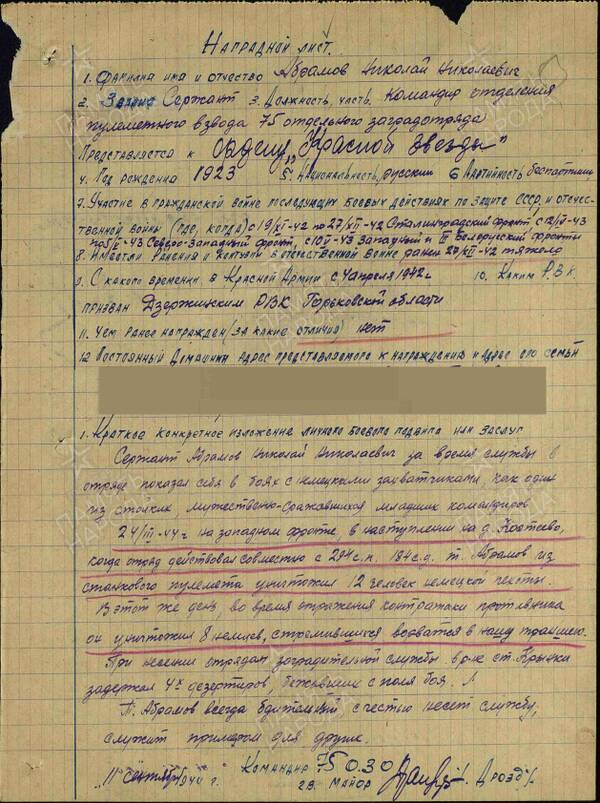 Наградной лист.
1. Фамилия имя и отчество Абрамов Николай Николаевич
2. Звание Сержант 3. Должность, часть Командир отделения
пулеметного взвода 75 отдельного заградотряда
Представляется к ордену „Красной звезды"
4. Год рождения 1923 5. Национальность, русский 6 Партийность беспартийн.
7. Участие в гражданской войне последующих боевых действиях по защите СССР и отечес-
твенной войны (где, когда) с 19/XI-42 по 27/XII-42 Сталинградский фронт с 12/IV-43
Северо-Западный фронт, Западный и III Белорусский фронты
8. Имеет ли ранения и контузии в отечественной войне ранен 27/XII-42 тяжело
9. С какого времени в Красной Армии с 4 апреля 1942 г 10. Каким Р.В.К.
призван Дзержинским РВК Горьковской области
11. Чем ранее награжден (за какие отличия) нет
12 Постоянный домашний адрес представляемого к награждению и адрес его семьи
1. Краткое конкретное изложение личного боевого подвига или заслуг
Сержант Абрамов Николай Николаевич за время службы в
отряде показал себя в боях с немецкими захватчиками, как один
из стойких мужественно-сражавшихся младших командиров
24/III-44 г на западном фронте, в наступлении на д.
когда отряд действовал совместно с с.п. с.д. т. Абрамов из
станкового пулемета уничтожил 12 человек немецкой пехоты.
В этот же день во время отражения контратаки противника
он уничтожил 8 немцев, стремившихся ворваться в нашу траншею.
При несении отрядом заградительной службы в р-не ст. Крынки
задержал 4х дезертиров, бежавших с поля боя.
Т. Абрамов всегда бдительный, с честью несет службу,
служит примером для других.
Командир 75 О.З.О
„11" сентября 1944 г. гв. майор /Дрозд/